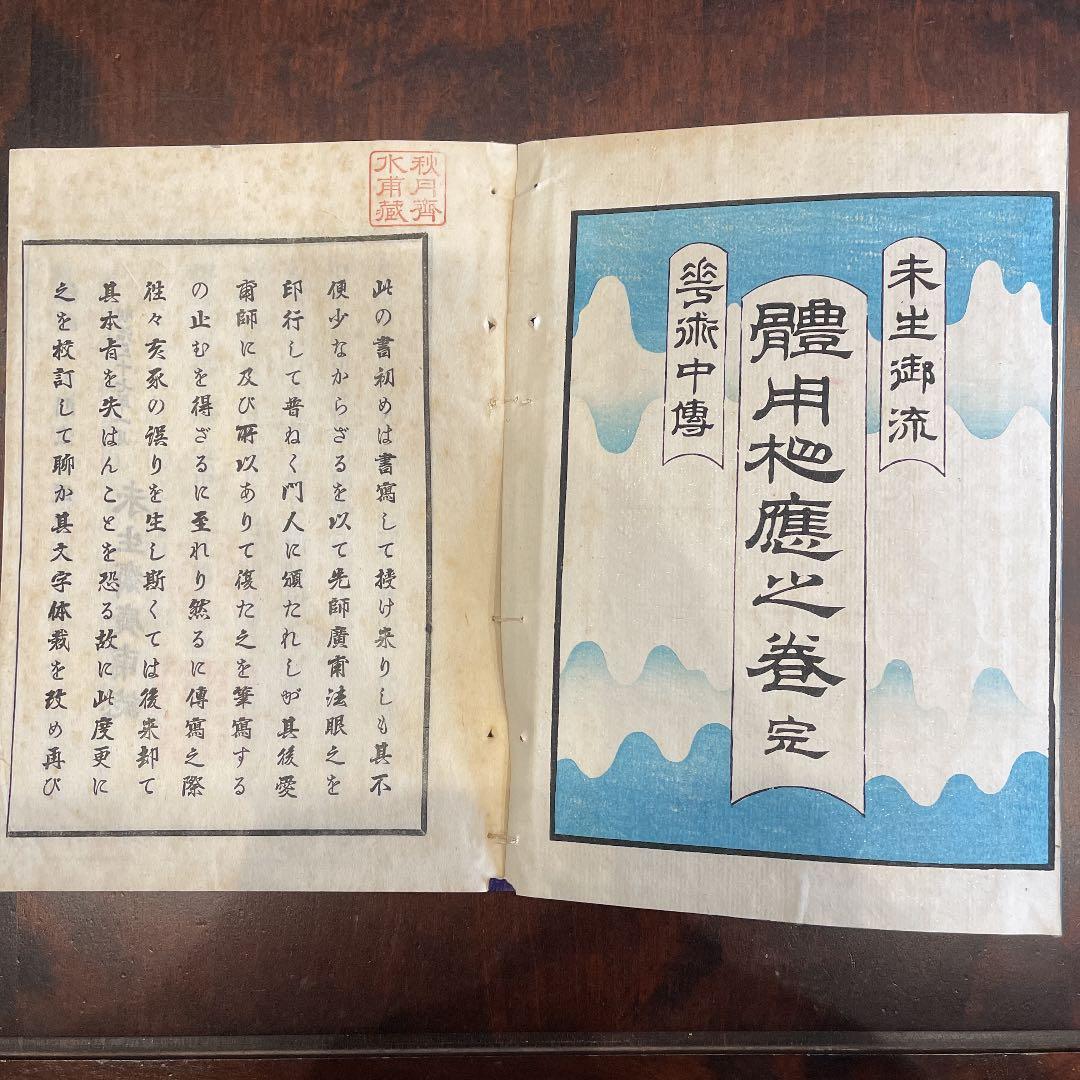 未生御流
體用相應之卷 完
華術中傳
秋月齊
水甫藏
此の書初めは書寫して授け来りしも其不
便少なからざるを以て先師廣甫法眼之を
印行して普ねく門人に頒たれしが其後愛
甫師に及び所以ありて復た之を筆寫する
の止むを得ざるに至れり然るに傳寫之際
徃々亥豕の誤りを生し斯くては後来却て
其本旨を失はんことを恐る故に此度更に
之を校訂して聊か其文字体裁を改め再び